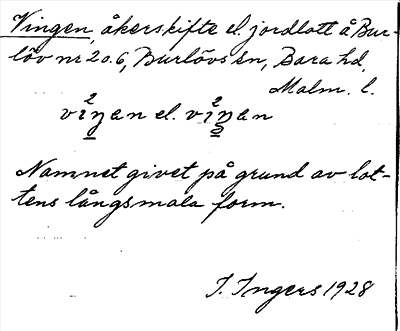 Vingen, åkerskifte el. jordlott å Bur-
löv nr 20.6, Burlövs sn, Bara hd,
Malm. l.
vi²ŋan el. vi²ŋan
Namnet givet på grund av lot-
tens långsmala form.
I. Ingers 1928